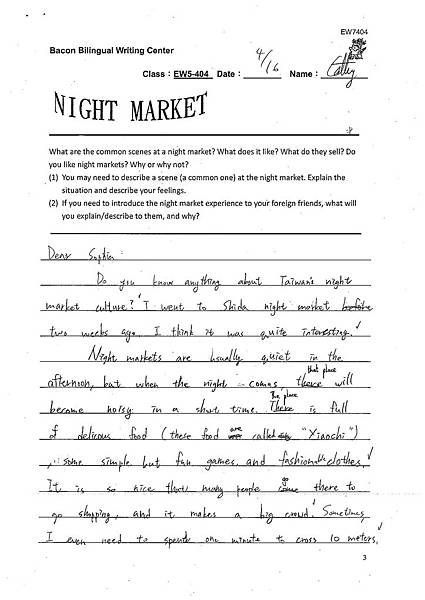 EW7404
Bacon Bilingual Writing Center
Class : EW5-404 Date : 4/16 Name : Cathy
NIGHT MARKET
What are the common scenes at a night market? What does it like? What do they sell? Do
you like night markets? Why or why not?
(1) You may need to describe a scene (a common one) at the night market. Explain the
situation and describe your feelings.
(2) If you need to introduce the night market experience to your foreign friends, what will
you explain/describe to them, and why?
Dear Sophia:
Do you know anything about Taiwan's night
market culture? I went to Shida night market
two weeks ago. I think it was quite interesting.
Nighf markets are usually quiet in the
that place
afternoon, but when the night comes, there will
The place
become noisy in a short time. There is full
of delirous food (these food are called "Xiaochi")
, some simple but fun games, and fashionable clothes.
It is so nice that many people go there to
go shopping, and it makes a big crowd. Sometimes,
I even need to spend one minute to cross 10 meters.
3